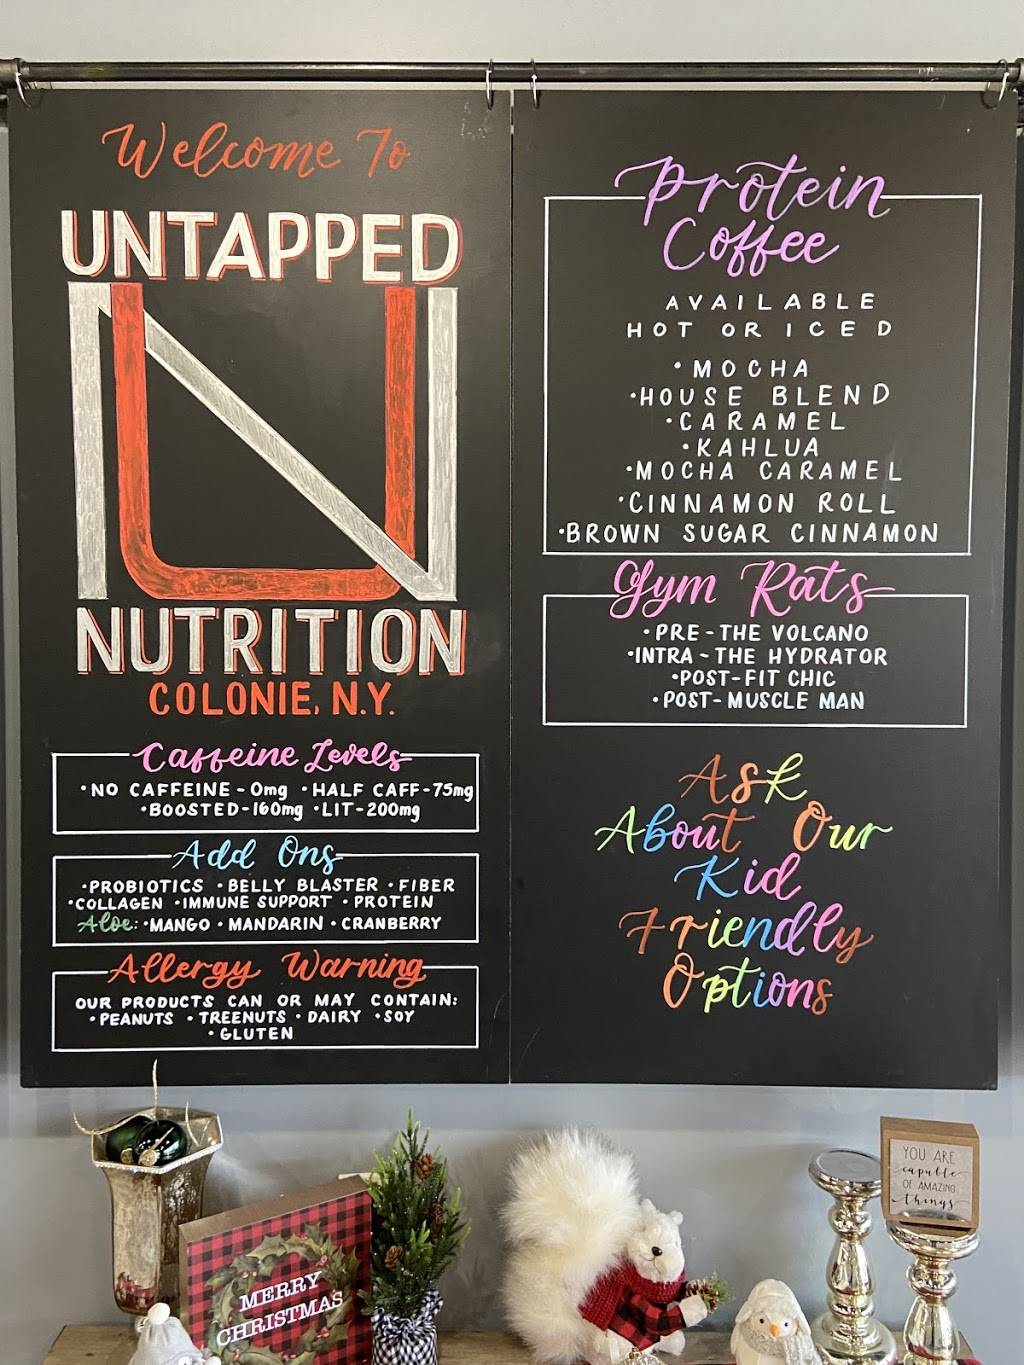 Welcome To
UNTAPPED
NUTRITION
COLONIE, N.Y.
Caffeine Levels
•NO CAFFEINE - 0mg •HALF CAFF-75mg
•BOOSTED-160mg •LIT-200mg
Add Ons
•PROBIOTICS •BELLY BLASTER •FIBER
•COLLAGEN •IMMUNE SUPPORT •PROTEIN
Aloe: •MANGO •MANDARIN •CRANBERRY
Allergy Warning
OUR PRODUCTS CAN OR MAY CONTAIN:
•PEANUTS •TREENUTS •DAIRY •SOY
•GLUTEN
Protein
Coffee
AVAILABLE
HOT OR ICED
•MOCHA
•HOUSE BLEND
•CARAMEL
•KAHLUA
•MOCHA CARAMEL
•CINNAMON ROLL
•BROWN SUGAR CINNAMON
Gym Rats
•PRE-THE VOLCANO
•INTRA-THE HYDRATOR
•POST-FIT CHIC
•POST-MUSCLE MAN
Ask
About Our
Kid
Friendly
Options
MERRY
CHRISTMAS
YOU ARE
capable
OF AMAZING
things